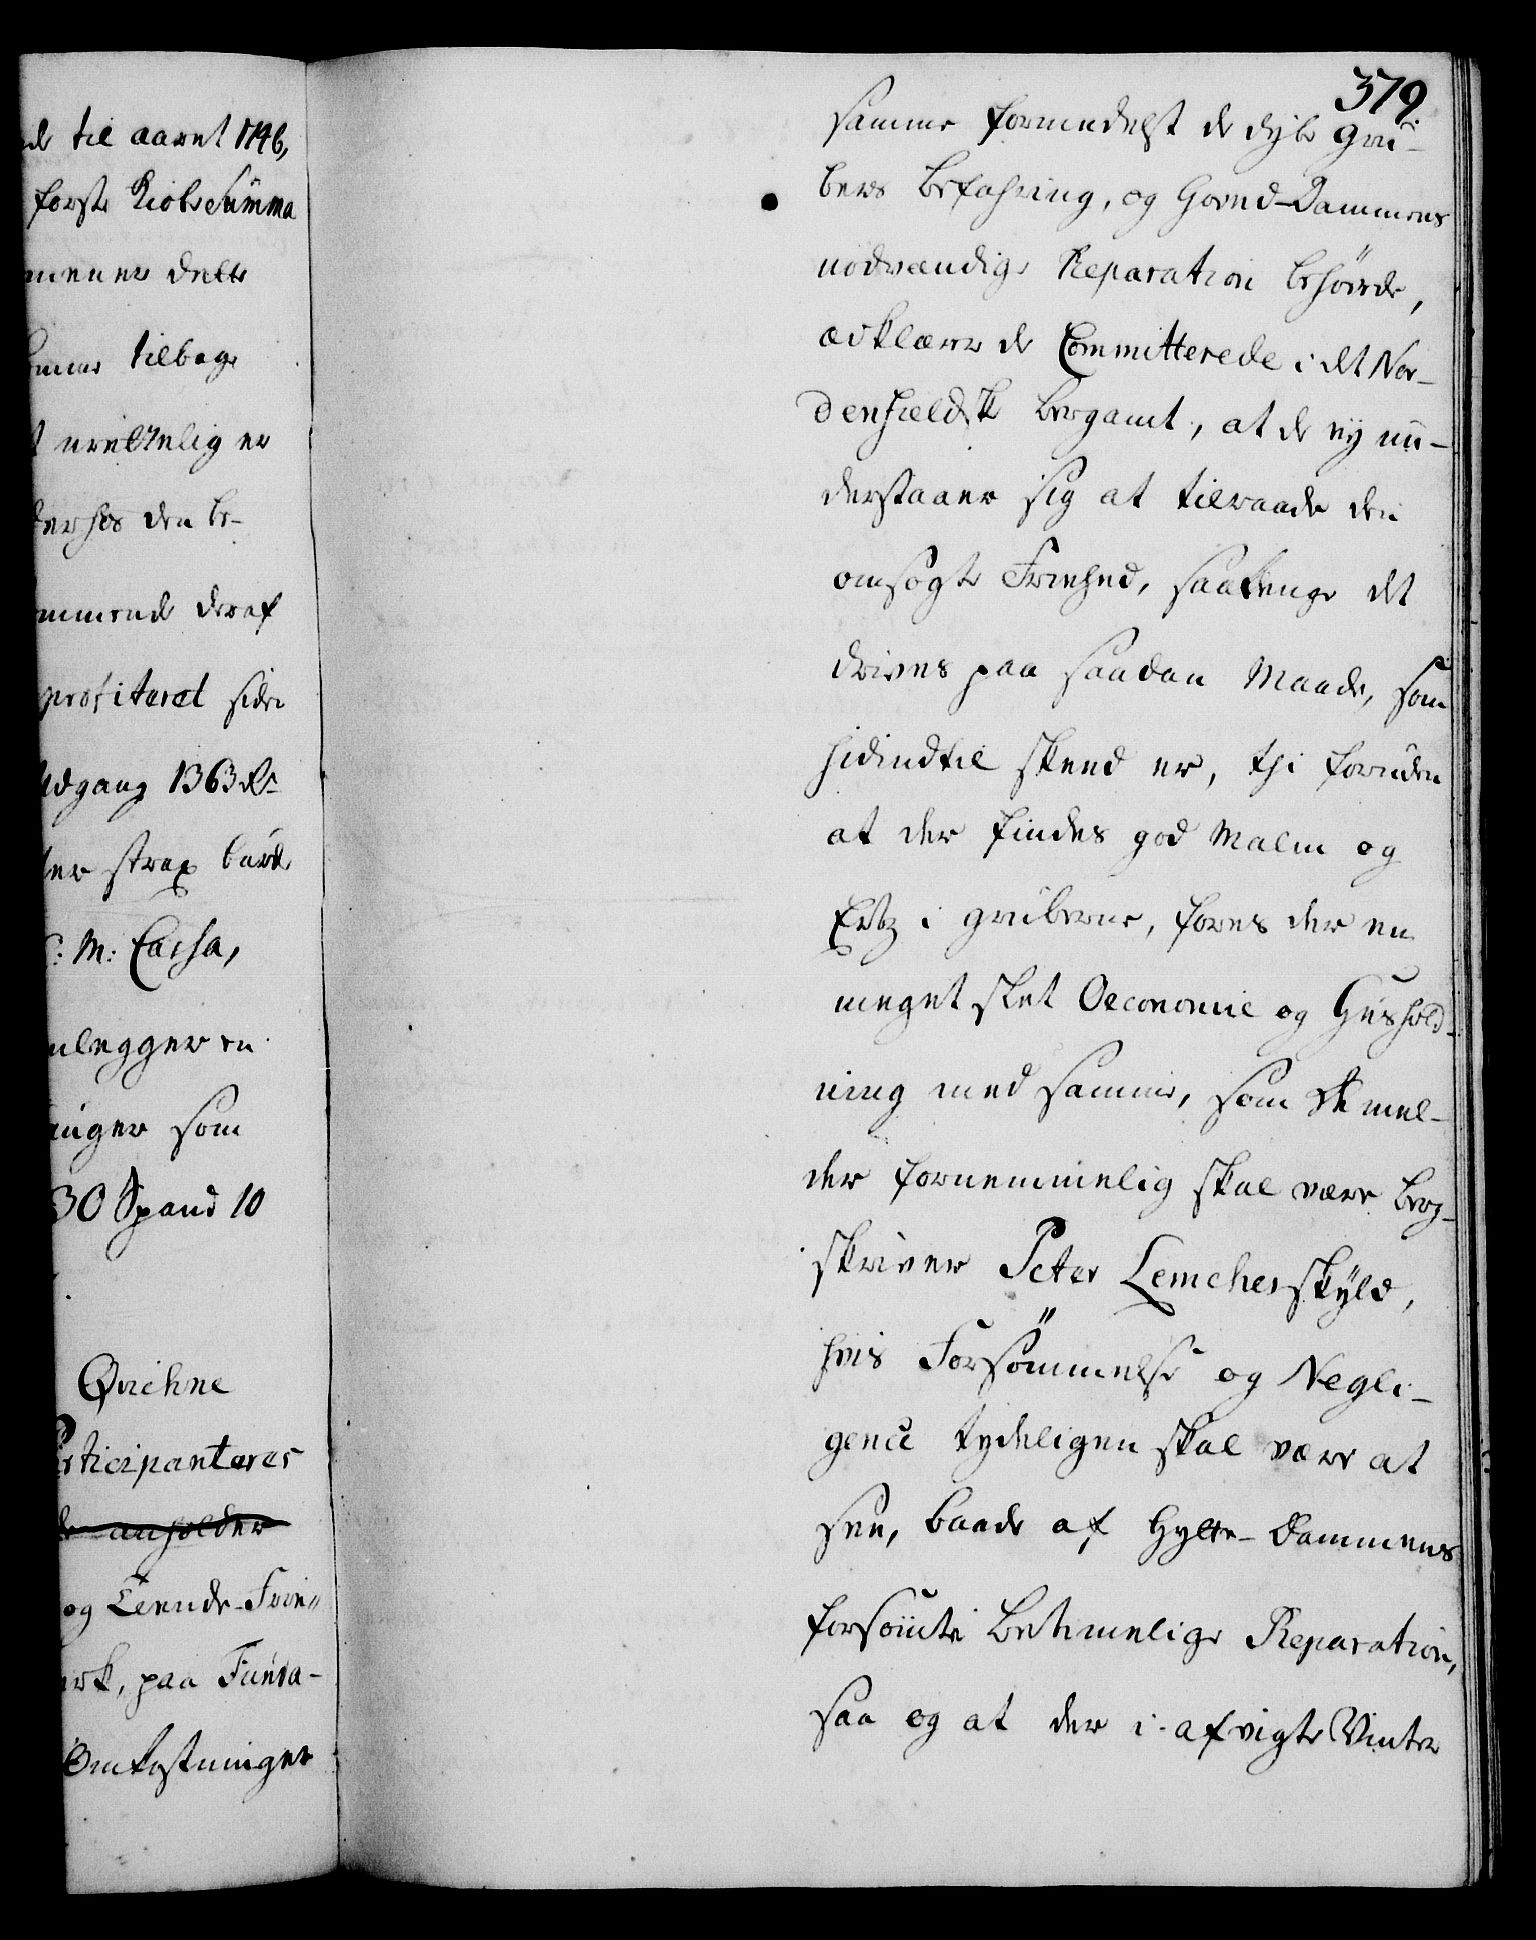 de til aaret 1746,
første Kiøbe Summa
mener dette
tilbage
urettelig er
derhos den be-
ommende deraf
profiteret siden
Udgang 1363 Rd
ter strax burde
: M: Cassa,
nlegger en
inger som
30 Spand 10
Qvichne
Participanteres
de anholder
og Tiende-Frie-
erk, paa Funda-
Omkostninger
379.
samme formedelst de dybe Gru-
bers Befahring, og Grend-Dammens
nødvændige Reparation behøvede,
erklærer de Committerede i det Nor-
denfieldske Bergamt, at de ey un-
derstaaer sig at tilraade den
omsøgte Friehed, saalenge det
drives paa saadan Maade, som
hidindtil skeed er, thi foruden
at der findes god Malm og
Ertz i gruberne, føres der en
meget slet Oeconomie og Huushold-
ning med samme, som de mel-
der fornemmelig skal være Berg-
skriver Peter Lemches skyld,
hvis Forsømmelse og Negli-
gence tydeligen skal være at
see, baade af Hytte-Dammens
forsømte betimelige Reparation,
saa og at der i afvigte Vinter